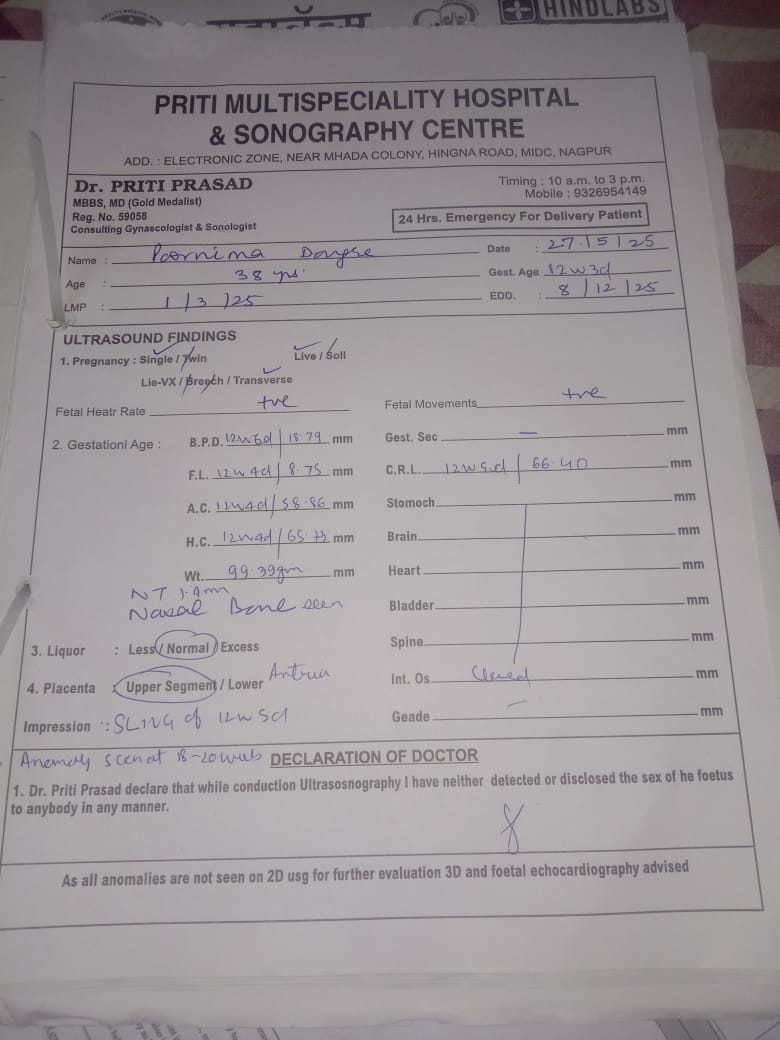 HINDLABS
PRITI MULTISPECIALITY HOSPITAL
& SONOGRAPHY CENTRE
ADD. : ELECTRONIC ZONE, NEAR MHADA COLONY, HINGNA ROAD, MIDC, NAGPUR
Dr. PRITI PRASAD
MBBS, MD (Gold Medalist)
Reg. No. 59058
Consulting Gynaecologist & Sonologist
Timing : 10 a.m. to 3 p.m.
Mobile : 9326954149
24 Hrs. Emergency For Delivery Patient
Name : Poornima Dongre Date : 27/5/25
Age : 38 yrs. Gest. Age 12w3d
LMP : 1/3/25 EDD. : 8/12/25
ULTRASOUND FINDINGS
1. Pregnancy : Single / Twin Live / Soll
Lie-VX / Breech / Transverse
Fetal Heatr Rate +ve Fetal Movements +ve
2. Gestationl Age : B.P.D. 12w6d/18.79 mm Gest. Sec — mm
F.L. 12w4d/8.75 mm C.R.L. 12w5d/66.40 mm
A.C. 12w4d/58.86 mm Stomoch mm
H.C. 12w4d/65.73 mm Brain mm
Wt. 99.39gm mm Heart mm
NT 1.4mm
Nasal Bone seen Bladder mm
3. Liquor : Less / Normal / Excess Spine mm
4. Placenta : Upper Segment / Lower Int. Os. Closed mm
Impression : SLIUG of 12w5d Geade — mm
Anomaly scan at 18-20 weeks DECLARATION OF DOCTOR
1. Dr. Priti Prasad declare that while conduction Ultrasosnography I have neither detected or disclosed the sex of he foetus
to anybody in any manner.
As all anomalies are not seen on 2D usg for further evaluation 3D and foetal echocardiography advised